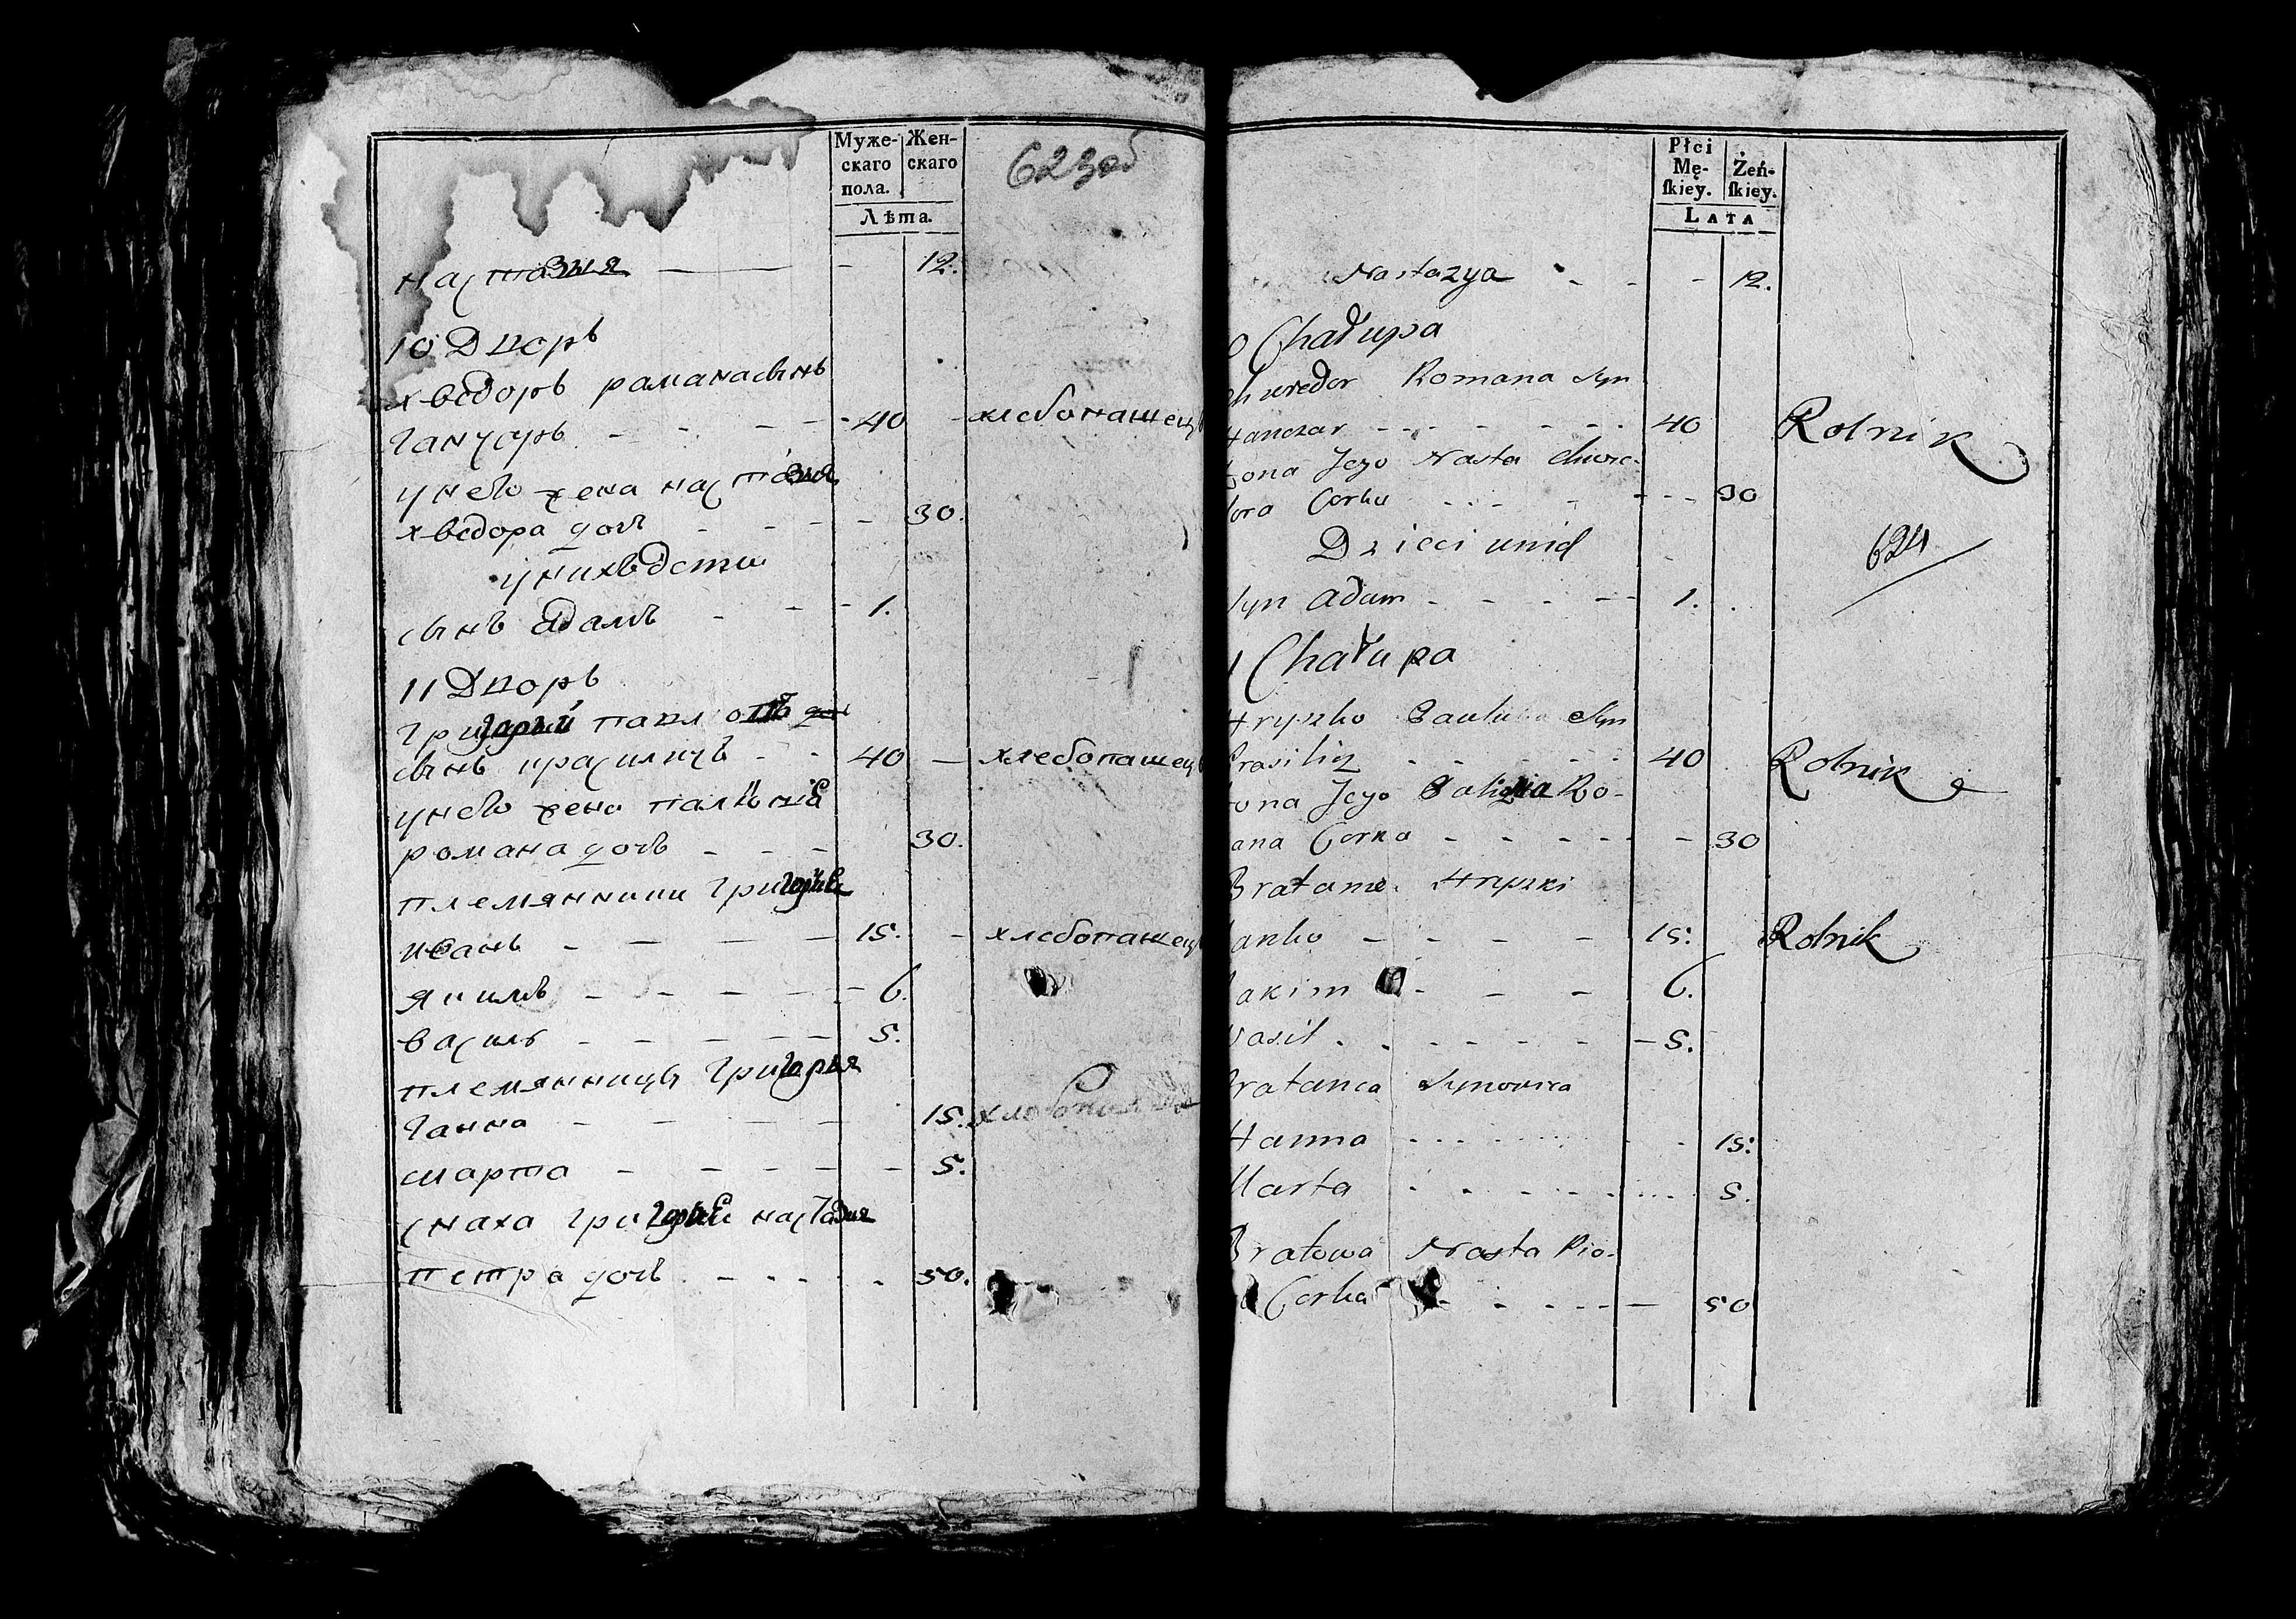 Муже-
скаго
пола.
Жен-
скаго
Лѣта.
623об
настазия — — - 12.
10 Дворъ
хведоръ раманасынъ
ганчаръ - - - - 40 - хлебопашецъ
унего жена настазия
хведора дочь - - - - 30.
унихъ дети
сынъ адамъ - - - 1.
11 Дворъ
григорый павловъ
сынъ красиличъ - - 40 — хлебопашецъ
унего жена
романа дочь - - - 30.
племянники
иванъ - - - - 15. - хлебопашецъ
якимъ - - - - - 6.
василь - - - - - 5.
племянницы григорыя
ганна - - - - 15.
марта - - - - - 5.
снаха настазия
петра дочь - - - - - 50.
Płci
Mę-
ſkiey.
Żeń-
ſkiey.
LATA
Nastazya - - - 12.
0 Chałupa
chwedor Romana Syn
Hanczar - - - - - - - 40 Rolnik
żona Jego Nasta chwe-
dora Corka - - - - - - 30
Dzieci unich
624
Syn Adam - - - - - 1.
1 Chałupa
Hryszko Syn
Krasilicz - - - - - - 40 Rolnik
żona Jego Ro-
mana Corka - - - - - - 30
Bratanie Hryszki
Janko - - - - - 15. Rolnik
Jakim - - - 6.
Wasil - - - - - - - 5.
Bratanca Synowica
Hanna - - - - - - - 15:
Marta - - - - - - - - 5.
Bratowa Nasta Pio-
Corka - - - - - - 50